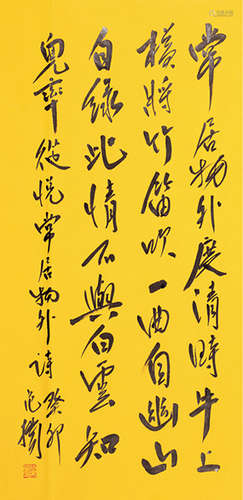 常居物外度清時牛上
橫將竹笛吹一曲自幽山
自綠此情不與白雲知
兜率從悅常居物外詩 癸卯